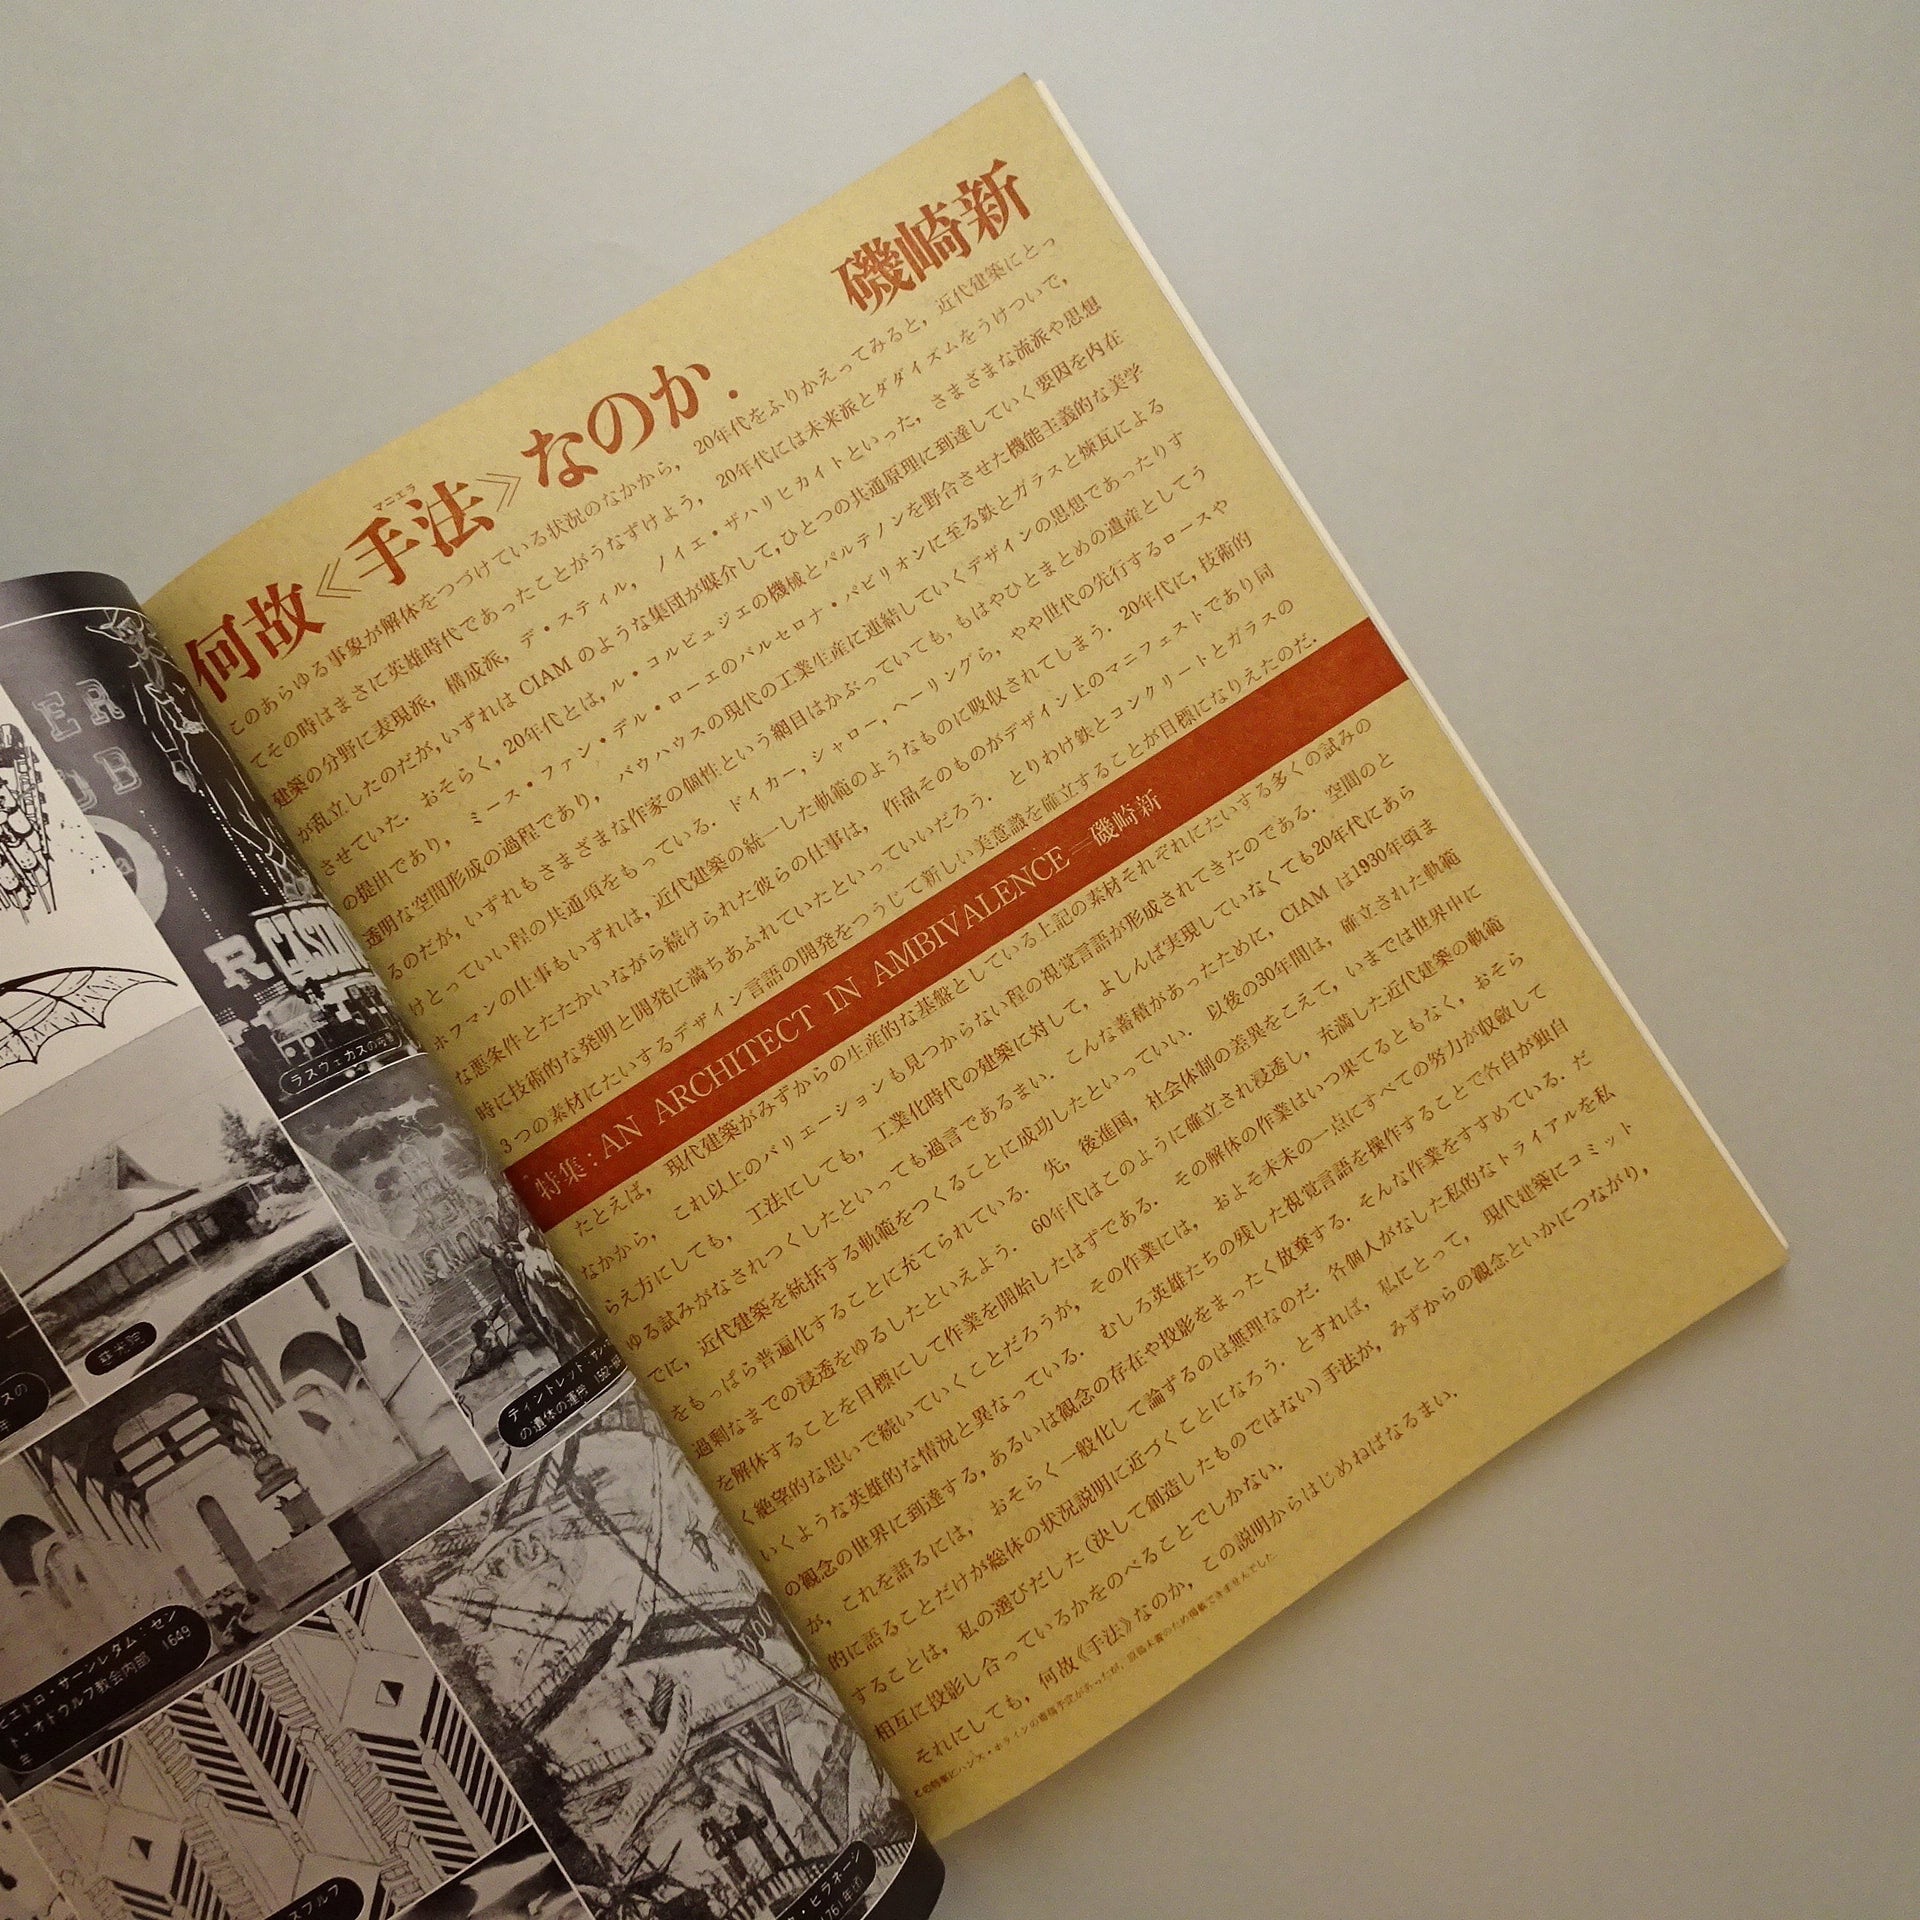 何故《手法》なのか.
マニエラ
磯崎新
このあらゆる事象が解体をつづけている状況のなかから，20年代をふりかえってみると，近代建築にとっ
てその時はまさに英雄時代であったことがうなずけよう，20年代には未来派とダダイズムをうけついで，
建築の分野に表現派，構成派，デ・スティル，ノイエ・ザハリヒカイトといった，さまざまな流派や思想
が乱立したのだが，いずれは CIAM のような集団が媒介して，ひとつの共通原理に到達していく要因を内在
させていた．おそらく，20年代とは，ル・コルビュジエの機械とパルテノンを野合させた機能主義的な美学
の提出であり，ミース・ファン・デル・ローエのバルセロナ・パビリオンに至る鉄とガラスと煉瓦による
透明な空間形成の過程であり，バウハウスの現代の工業生産に連結していくデザインの思想であったりす
るのだが，いずれもさまざまな作家の個性という網目はかぶっていても，もはやひとまとめの遺産としてう
けとっていい程の共通項をもっている．ドイカー，シャロー，ヘーリングら，やや世代の先行するロースや
ホフマンの仕事もいずれは，近代建築の統一した軌範のようなものに吸収されてしまう．20年代に，技術的
な悪条件とたたかいながら続けられた彼らの仕事は，作品そのものがデザイン上のマニフェストであり同
時に技術的な発明と開発に満ちあふれていたといっていいだろう．とりわけ鉄とコンクリートとガラスの
3つの素材にたいするデザイン言語の開発をつうじて新しい美意識を確立することが目標になりえたのだ．
特集：AN ARCHITECT IN AMBIVALENCE＝磯崎新
たとえば，現代建築がみずからの生産的な基盤としている上記の素材それぞれにたいする多くの試みの
なかから，これ以上のバリエーションも見つからない程の視覚言語が形成されてきたのである．空間のと
らえ方にしても，工法にしても，工業化時代の建築に対して，よしんば実現していなくても20年代にあら
ゆる試みがなされつくしたといっても過言であるまい．こんな蓄積があったために，CIAM は1930年頃ま
でに，近代建築を統括する軌範をつくることに成功したといっていい．以後の30年間は，確立された軌範
をもっぱら普遍化することに充てられている．先，後進国，社会体制の差異をこえて，いまでは世界中に
過剰なまでの浸透をゆるしたといえよう．60年代はこのように確立され浸透し，充満した近代建築の軌範
を解体することを目標にして作業を開始したはずである．その解体の作業はいつ果てるともなく，おそら
く絶望的な思いで続いていくことだろうが，その作業には，およそ未来の一点にすべての努力が収斂して
いくような英雄的な情況と異なっている．むしろ英雄たちの残した視覚言語を操作することで各自が独自
の観念の世界に到達する，あるいは観念の存在や投影をまったく放棄する．そんな作業をすすめている．だ
が，これを語るには，おそらく一般化して論ずるのは無理なのだ．各個人がなした私的なトライアルを私
的に語ることだけが総体の状況説明に近づくことになろう．とすれば，私にとって，現代建築にコミット
することは，私の選びだした（決して創造したものではない）手法が，みずからの観念といかにつながり，
相互に投影し合っているかをのべることでしかない．
それにしても，何故《手法》なのか，この説明からはじめねばなるまい．
ラスウェガスの
慈光院
ティントレット：
の遺体の運搬
ピエトロ・サーンレダム：セン
ト・オドウルフ教会内部 1649
CASINO